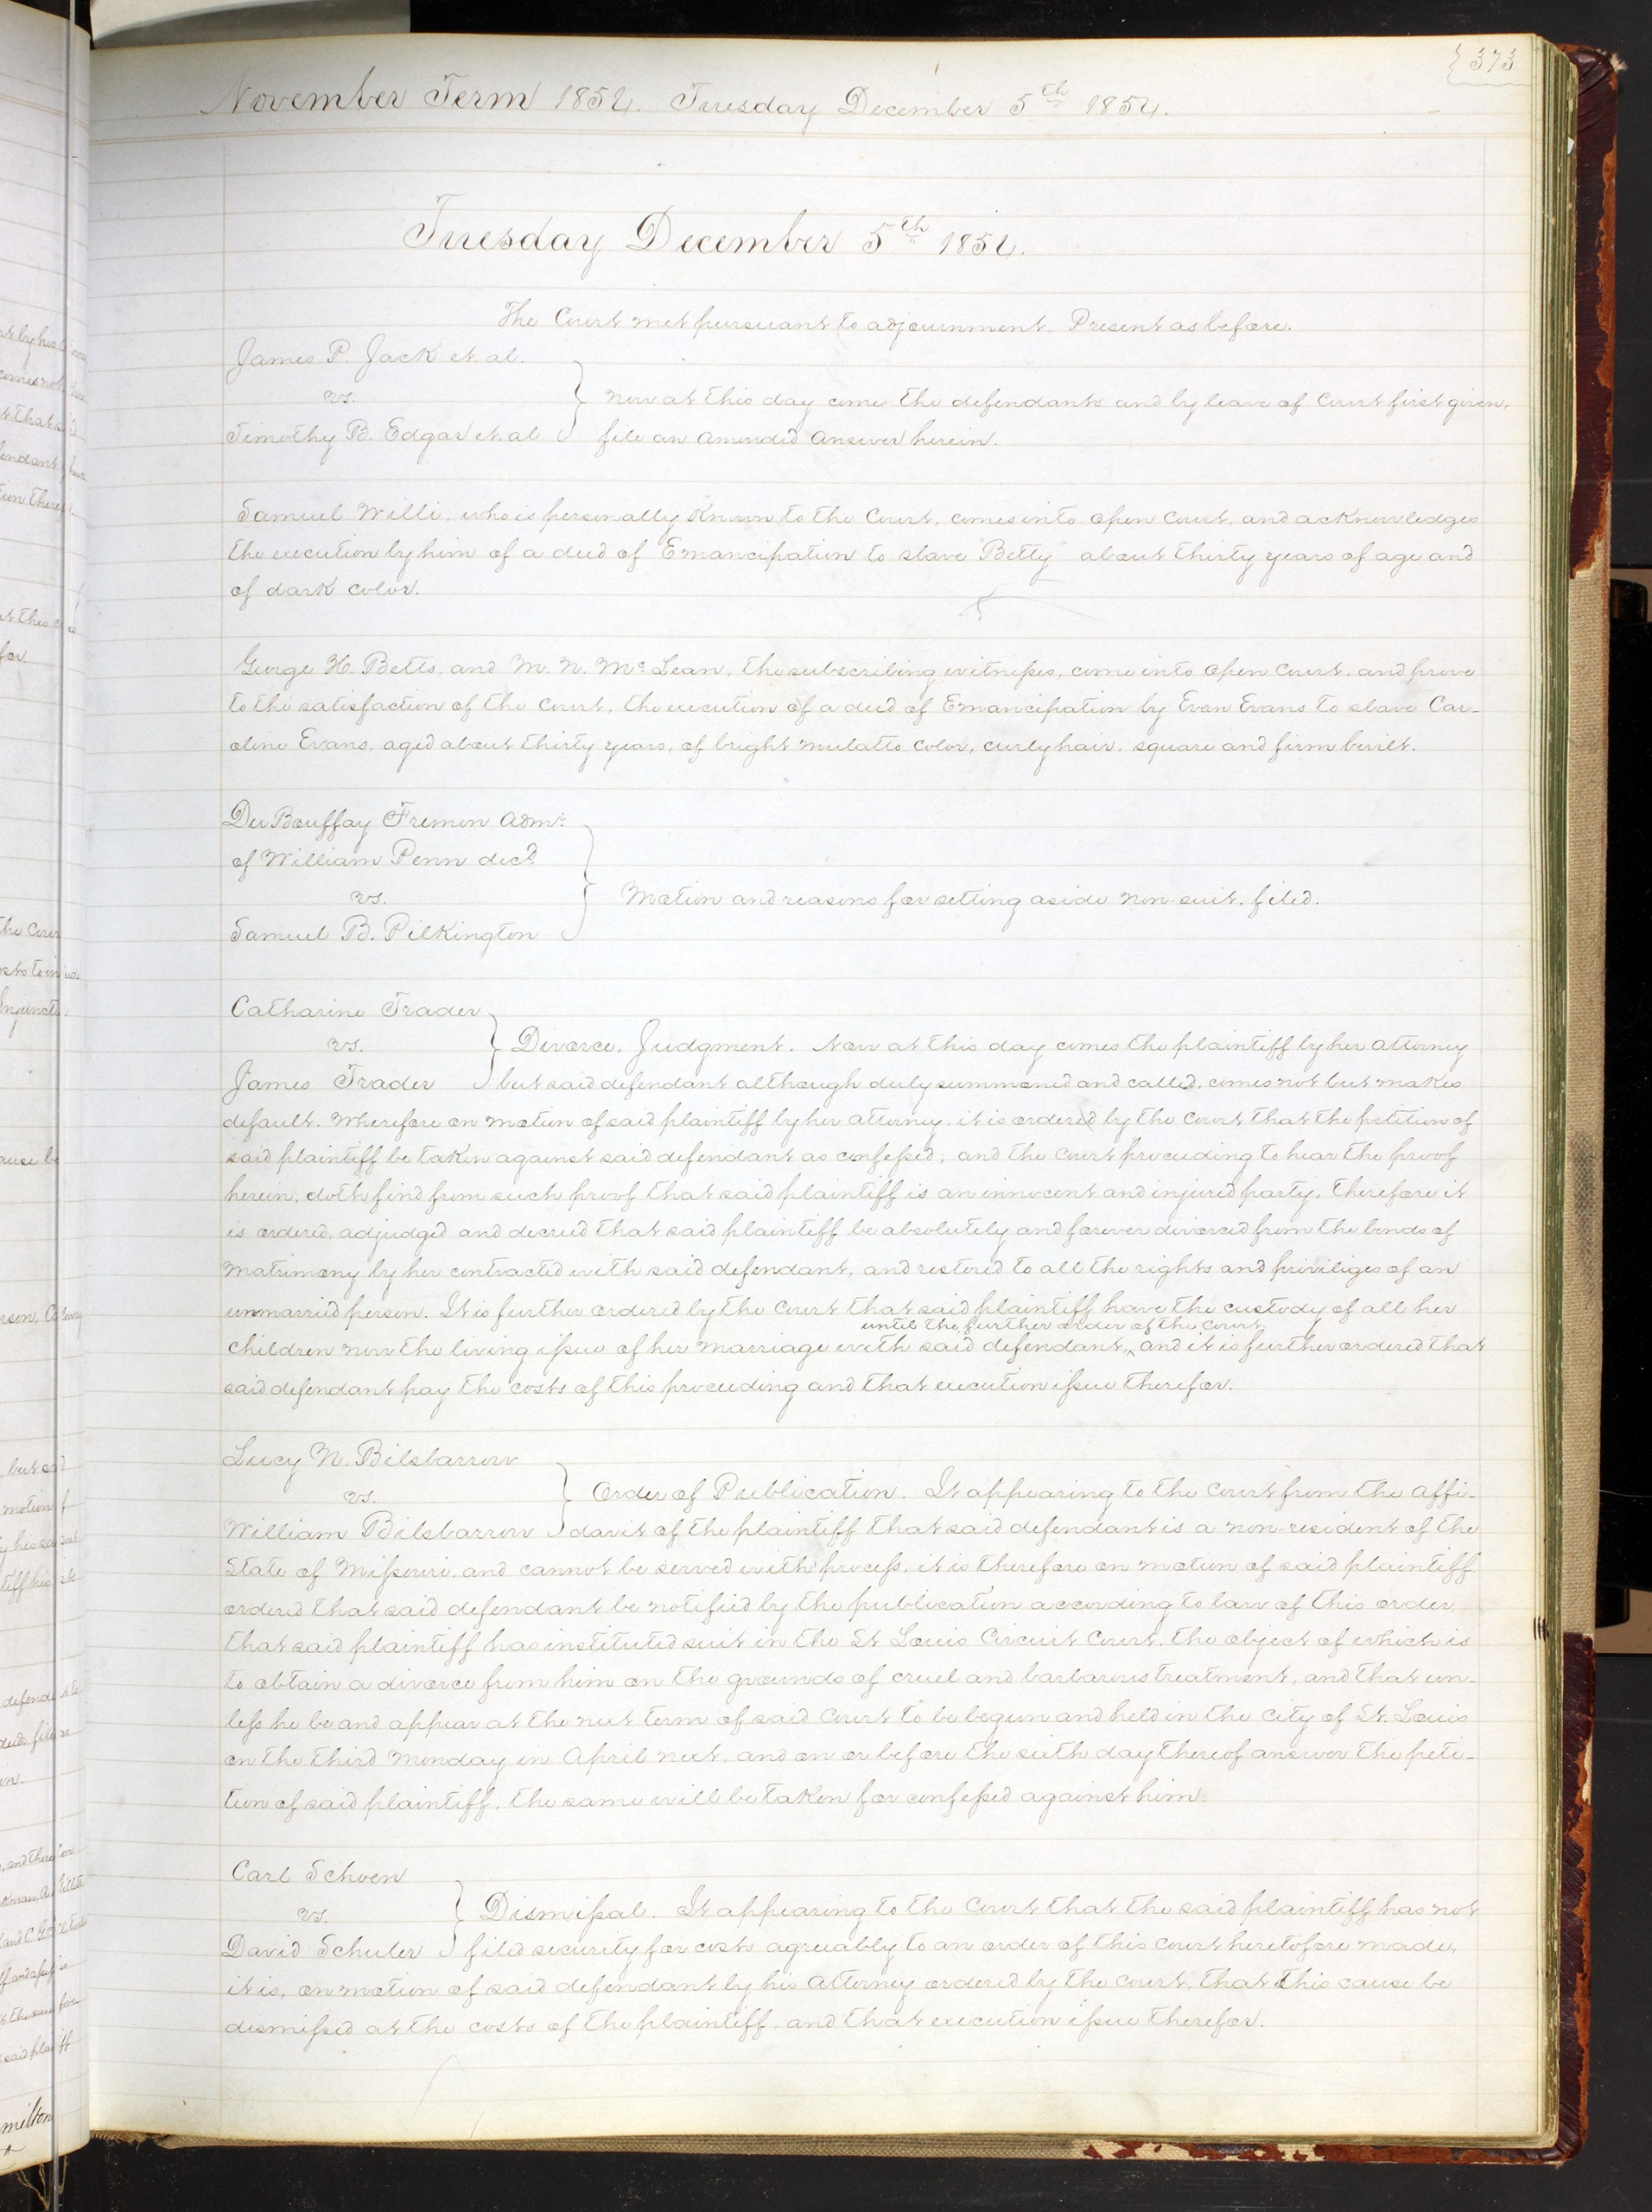 373
November Term 1854. Tuesday December 5th 1854.
Tuesday December 5th 1854.
The Court met pursuant to adjournment. Present as before.
James P. Jack et. al.
vs.
Timothy B. Edgar et. al.
Now at this day come the defendants and by leave of Court first given,
file an amended answer herein.
Samuel Willi, who is personally known to the Court, comes into open Court, and acknowledges
the execution by him of a deed of Emancipation to slave "Betty" about thirty years of age and
of dark color.
George H. Betts, and M. N. McLean, the subscribing witnesses, come into open Court, and prove
to the satisfaction of the Court, the execution of a deed of Emancipation by Evan Evans to slave Car-
oline Evans, aged about thirty years, of bright mulatto color, curly hair, square and firm built.
Du Bouffay Fremon Admr.
of William Penn decd.
vs.
Samuel B. Pilkington
Motion and reasons for setting aside non-suit, filed.
Catharine Trader
vs.
James Trader
Divorce. Judgment. Now at this day comes the plaintiff by her attorney
but said defendant although duly summoned and called, comes not but makes
default. Wherefore on motion of said plaintiff by her attorney, it is ordered by the Court that the petition of
said plaintiff be taken against said defendant as confessed; and the Court proceeding to hear the proof
herein, doth find from such proof that said plaintiff is an innocent and injured party. Therefore it
is ordered, adjudged and decreed that said plaintiff be absolutely and forever divorced from the bonds of
matrimony by her contracted with said defendant, and restored to all the rights and priviliges of an
unmarried person. It is further ordered by the Court that said plaintiff have the custody of all her
until the further order of the Court
children now the living issue of her marriage with said defendant, and it is further ordered that
said defendant pay the costs of this proceeding and that execution issue therefor.
Lucy N. Bilsbarrow
vs.
William Bilsbarrow
Order of Publication. It appearing to the Court from the affi-
davit of the plaintiff that said defendant is a non-resident of the
State of Missouri, and cannot be served with process, it is therefore on motion of said plaintiff
ordered that said defendant be notified by the publication according to law of this order
that said plaintiff has instituted suit in the St Louis Circuit Court, the object of which is
to obtain a divorce from him on the grounds of cruel and barbarous treatment, and that un-
less he be and appear at the next term of said Court to be begun and held in the City of St. Louis
on the third Monday in April next, and on or before the sixth day thereof answer the peti-
tion of said plaintiff, the same will be taken for confessed against him.
Carl Schoen
vs.
David Schuler
Dismissal. It appearing to the Court that the said plaintiff has not
filed security for costs agreeably to an order of this Court heretofore made,
it is, on motion of said defendant by his Attorney ordered by the Court, that this cause be
dismissed at the costs of the plaintiff, and that execution issue therefor.